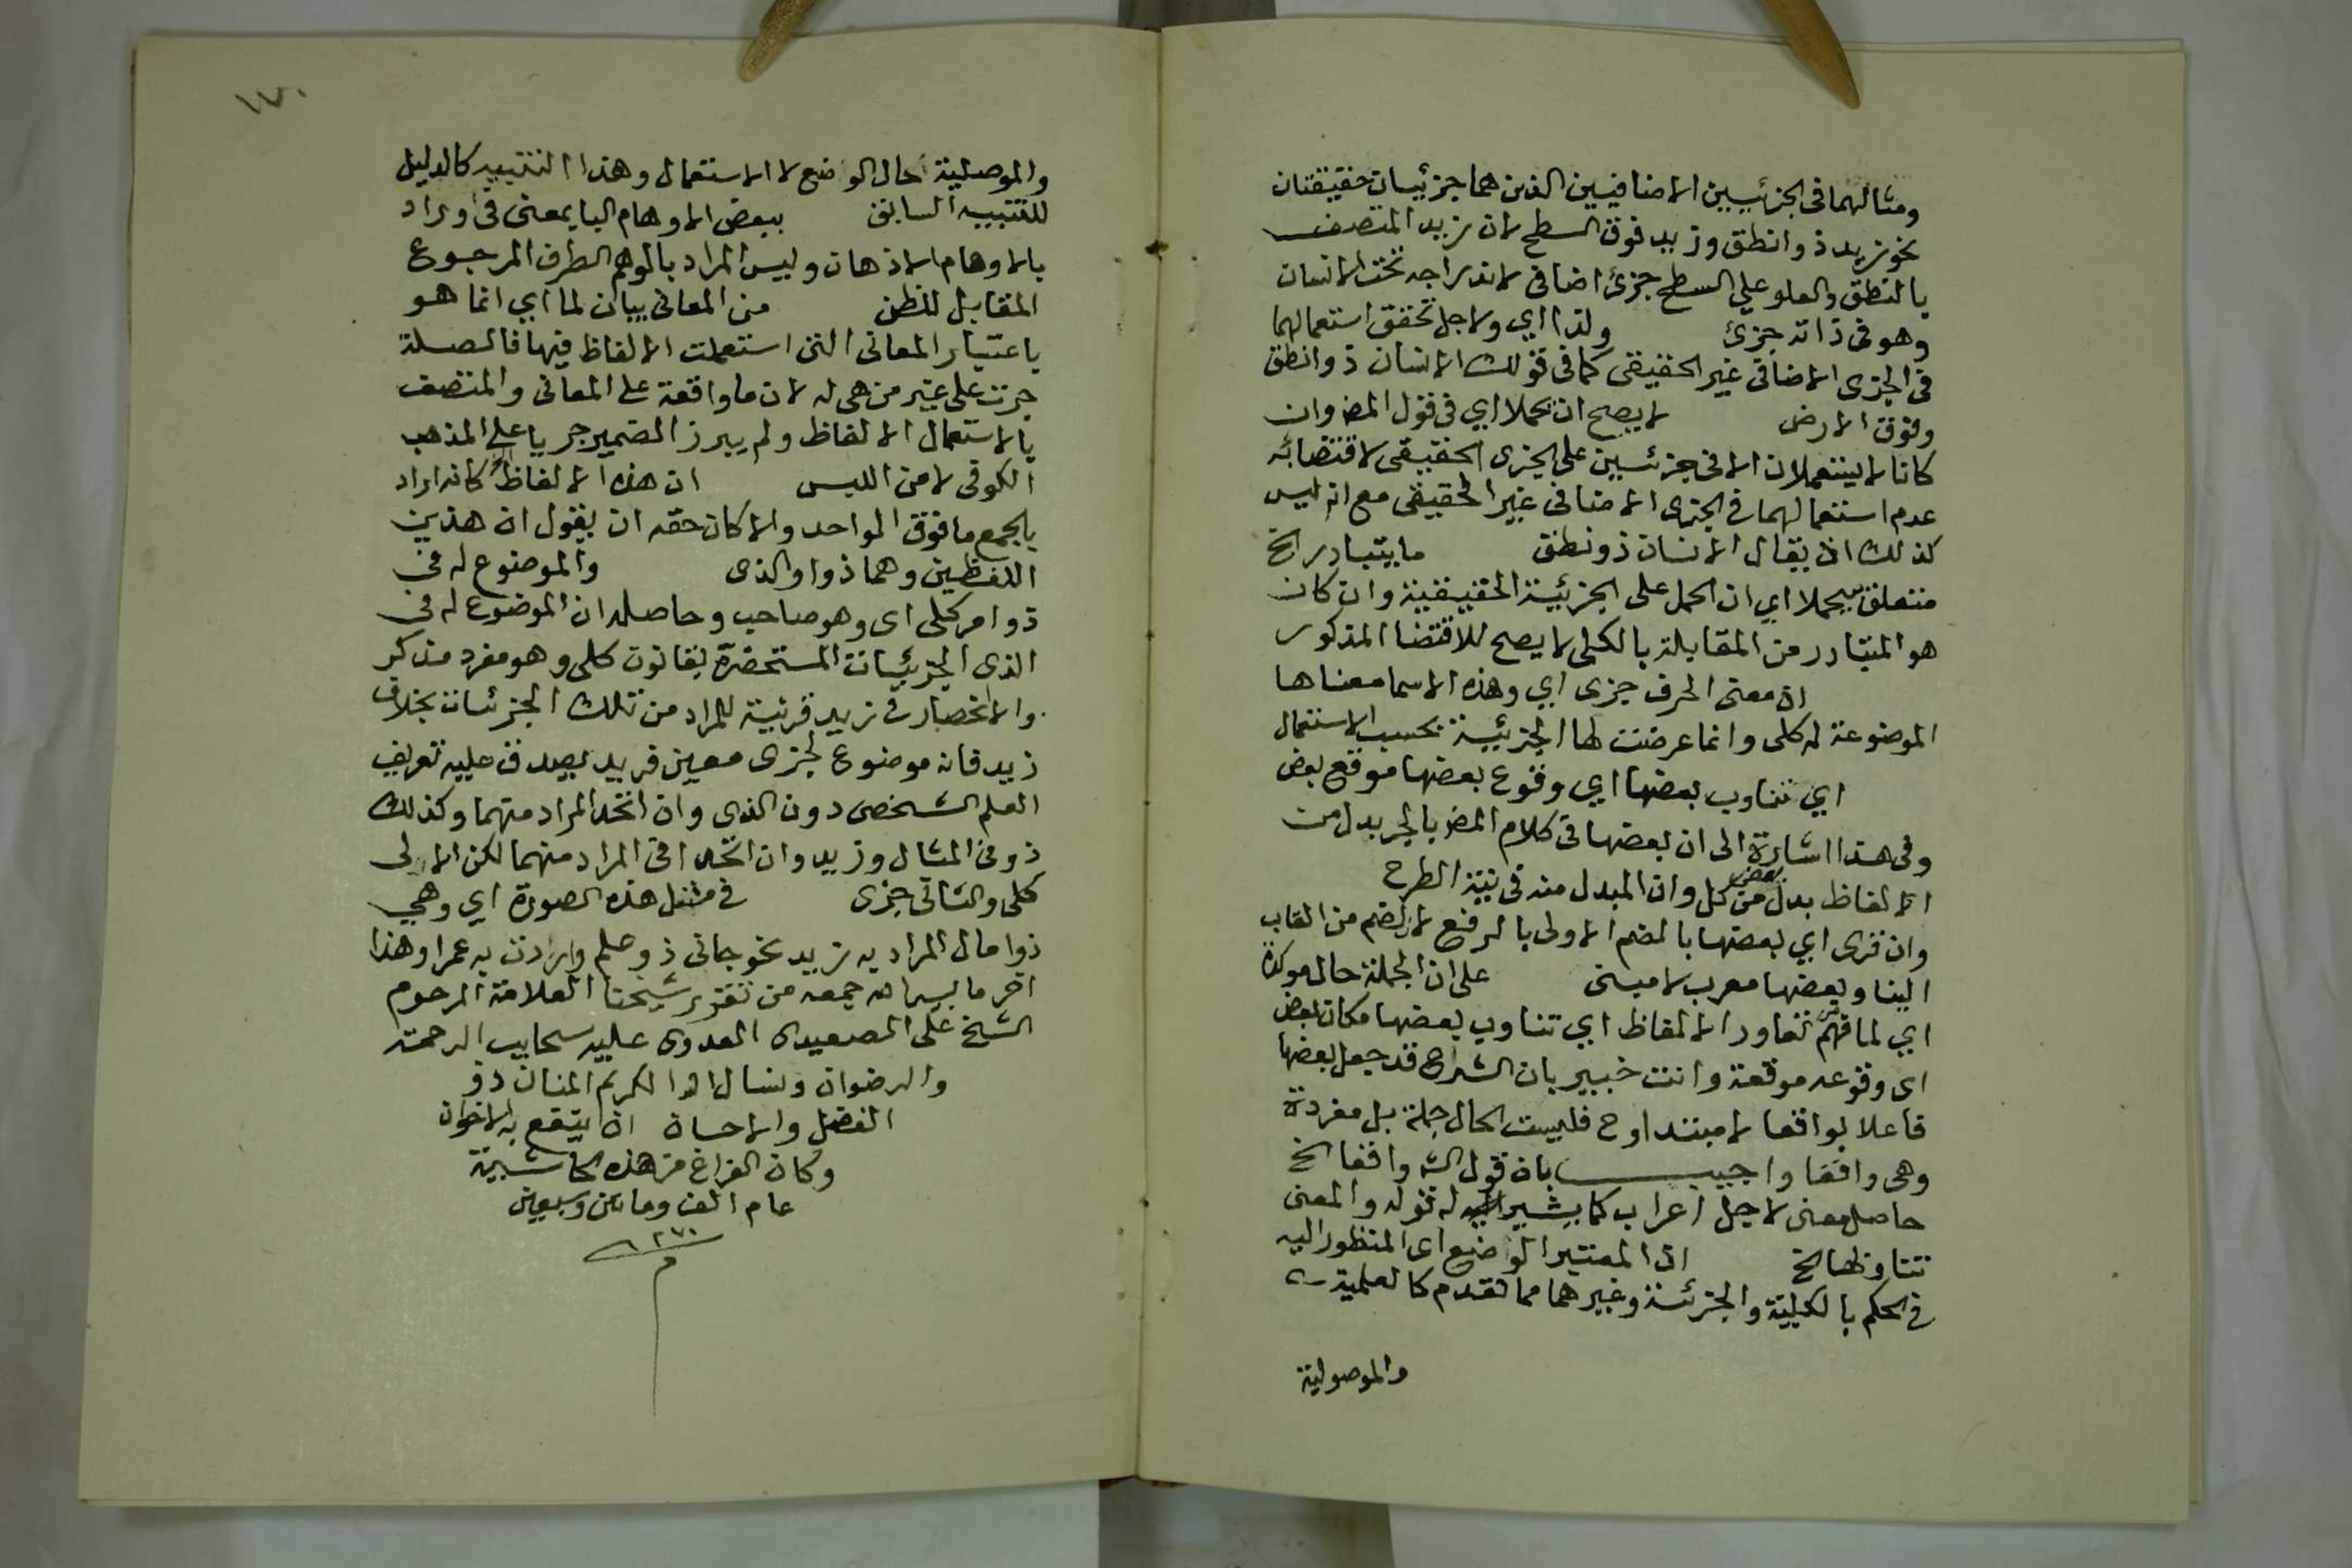 ومثالهما في الجزئيين الاضافيين الذين هما جزئيان حقيقتان
نحو زيد ذو انطق وزيد فوق السطح لان زيد المتصف
بالنطق والعلو علي السطح جزئ اضافى لاندراجه تحت الانسان
وهو في ذاته جزئ ولذا اي ولاجل تحقق استعمالهما
في الجزى الاضافى غير الحقيقى كما في قولك الانسان ذو انطق
وفوق الارض لا يصح ان يحملا اي في قول المض وان
كانا لا يستعملان الا في جزئيين على الجزى الحقيقى لاقتضائه
عدم استعمالهما في الجزى الاضافى غير الحقيقى مع انه ليس
كذلك اذ يقال الانسان ذو نطق ما يتبادر الخ
متعلق بيحملا اي ان الحمل على الجزئية الحقيقية وان كان
هو المتبادر من المقابلة بالكلى لا يصح للاقتضا المذكور
ان معنى الحرف جزى اي وهذه الاسما معناها
الموضوعة له كلى وانما عرضت لها الجزئية بحسب الاستعمال
اي تناوب بعضها اي وقوع بعضها موقع بعض
وفى هذا اشارة الى ان بعضها في كلام المض بالجر بدل من
الالفاظ بدل بعض من كل وان المبدل منه في نية الطرح
وان قرى اي بعضها بالضم الاولى بالرفع لان الضم من القاب
البنا وبعضها معرب لا مبنى على ان الجملة حال موكدة
اي لما فهم من تعاور الالفاظ اي تناوب بعضها مكان بعض
اى وقوعه موقعة وانت خبير بان الشراح قد جعل بعضها
فاعلا بواقعا لا مبتدا وح فليست الحال جملة بل مفردة
وهى واقعا واجيب بان قول الش واقعا الخ
حاصل معنى لا حل اعراب كما يشير له قوله والمعنى
تتاولها الخ اذ المعتبر الوضع اى المنظور اليه
في الحكم بالكلية والجزئية وغيرهما مما تقدم كالعلمية
والموصولية
١٧٠
والموصلية حال الوضع لا الاستعمال وهذا التنبيه كالدليل
للتنبيه السابق ببعض الاوهام البا بمعنى في اوراد
بالاوهام الاذهان وليس المراد بالوهم الطرف المرجوع
المقابل للظن من المعانى بيان لما اي انما هو
باعتبار المعانى التى استعملت الالفاظ فيها فالصلة
جرت على غير من هى له لان ما واقعة على المعانى والمتصف
بالاستعمال الالفاظ ولم يبرز الضمير جريا على المذهب
الكوفى لامن اللبس ان هذه الالفاظ كانه اراد
بالجمع ما فوق الواحد والا كان حقه ان يقول ان هذين
اللفظين وهما ذو والذى والموضوع له في
ذو امر كلى اى وهو صاحب وحاصله ان الموضوع له في
الذى الجزئيات المستحضرة بقانون كلى وهو مفرد مذكر
والانحصار في زيد قرينة للمراد من تلك الجزئيات بخلاف
زيد فانه موضوع لجزى معين فزيد يصدق عليه تعريف
العلم الشخصى دون الذى وان اتحد المراد منهما وكذلك
ذو في المثال وزيد وان اتحدا في المراد منهما لكن الاولى
كلى والثانى جزى في مثل هذه الصورة اي وهي
ذو امال المراد به زيد نحو جانى ذو علم واردت به عمرا وهذا
اخر ما يسر الله جمعه من تقرير شيخنا العلامة المرحوم
الشيخ على الصعيدى العدوى عليه سحايب الرحمة
والرضوان ونسال الله الكريم المنان ذو
الفضل والاحسان ان ينفع به الاخوان
وكان الفراغ من هذه الحاشية
عام الف ومائتين وسبعين
١٢٧٠
م